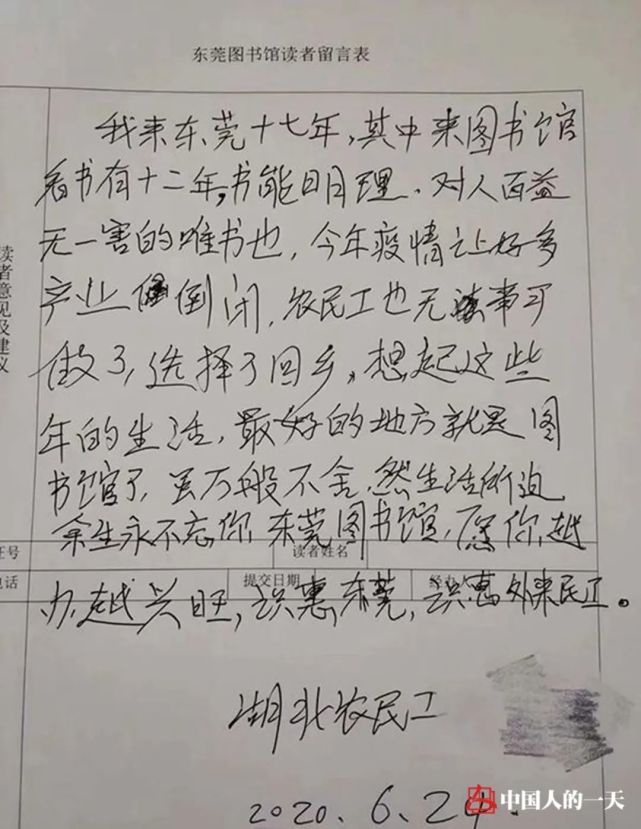 东莞图书馆读者留言表
读者意见及建议
我来东莞十七年，其中来图书馆
看书有十二年，书能明理，对人百益
无一害的唯书也，今年疫情让好多
产业倒闭，农民工也无事可
做了，选择了回乡，想起这些
年的生活，最好的地方就是图
书馆了，虽万般不舍，然生活所迫
余生永不忘你，东莞图书馆，愿你越
证号 读者姓名
电话 提交日期 经办人
办越兴旺，识惠东莞，识惠外来民工。
湖北农民工
2020.6.24.
中国人的一天